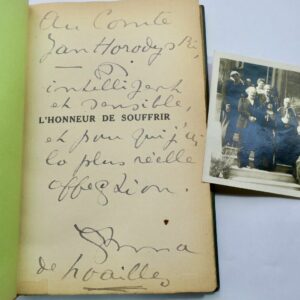 Au Comte
Jan Horodyski,
intelligent
et sensible,
L'HONNEUR DE SOUFFRIR
et pour qui j'ai
la plus réelle
affection.
Anna
de Noailles